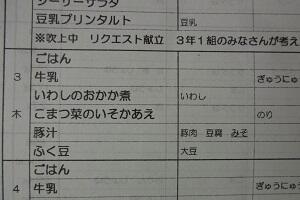 シーザーサラダ
豆乳プリンタルト 豆乳
※吹上中 リクエスト献立 3年1組のみなさんが考え
ごはん
3 牛乳 ぎゅうにゅ
いわしのおかか煮 いわし
木 こまつ菜のいそかあえ のり
豚汁 豚肉 豆腐 みそ
ふく豆 大豆
ごはん
4 牛乳 ぎゅうにゅ